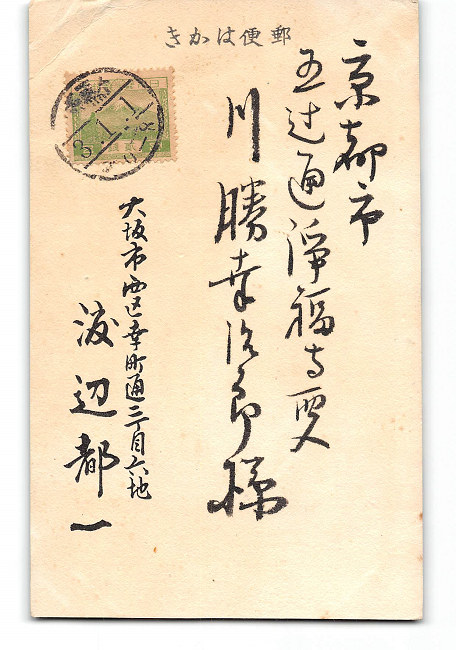 きかは便郵
京都市
五辻通浄福寺西入
川勝幸治郎様
大坂市西区幸町通二丁目六地
渡辺都一
3.1.1